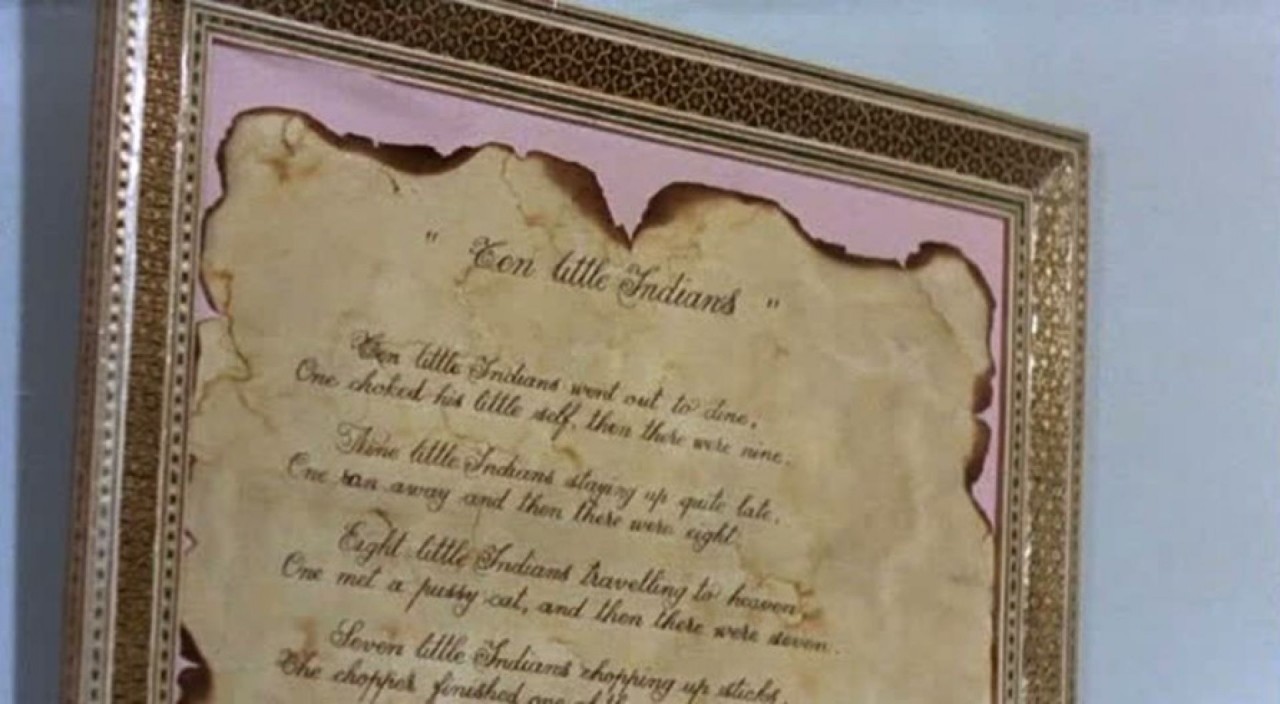 " Ten little Indians "
Ten little Indians went out to dine,
One choked his little self, then there were nine.
Nine little Indians staying up quite late,
One ran away and then there were eight.
Eight little Indians travelling to heaven,
One met a pussy-cat, and then there were seven.
Seven little Indians chopping up sticks,
The chopper finished one of